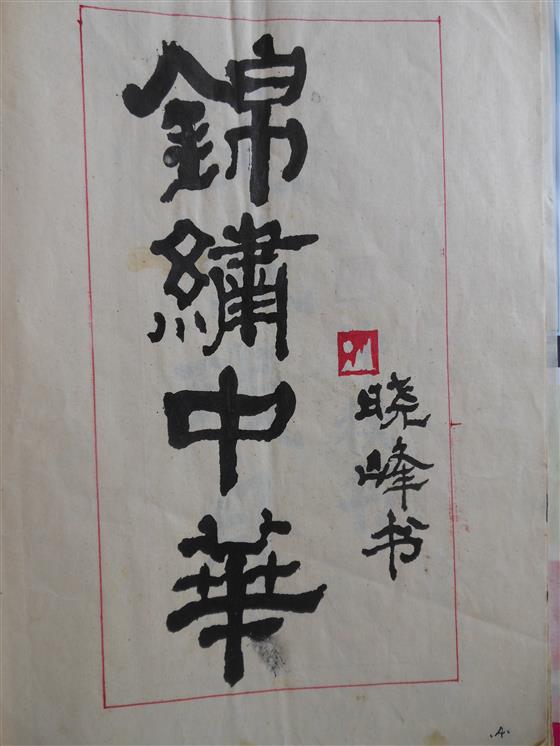 錦繡中華
晓峰书
.4.